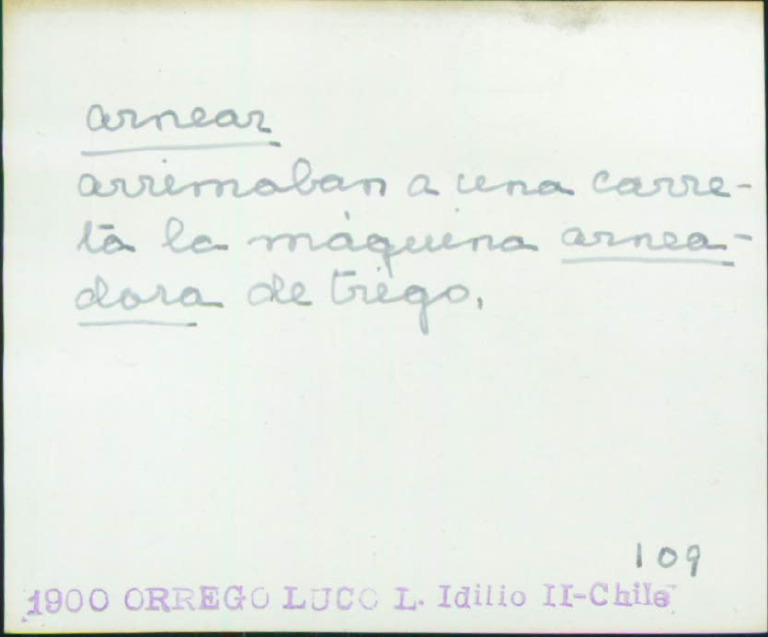 arnear
arrimaban a una carre-
ta la máquina arnea-
dora de trigo.
109
1900 ORREGO LUCO L. Idilio II-Chile